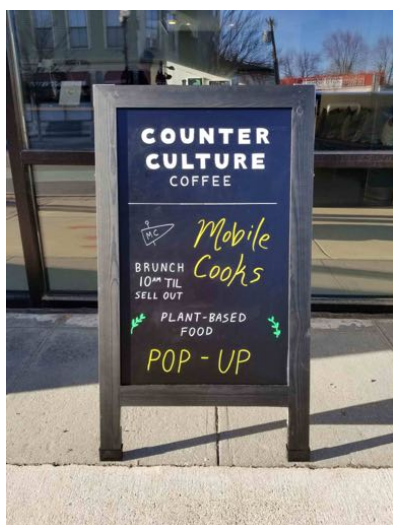 COUNTER
CULTURE
COFFEE
MC
Mobile
Cooks
BRUNCH
10AM TIL
SELL OUT
PLANT-BASED
FOOD
POP-UP